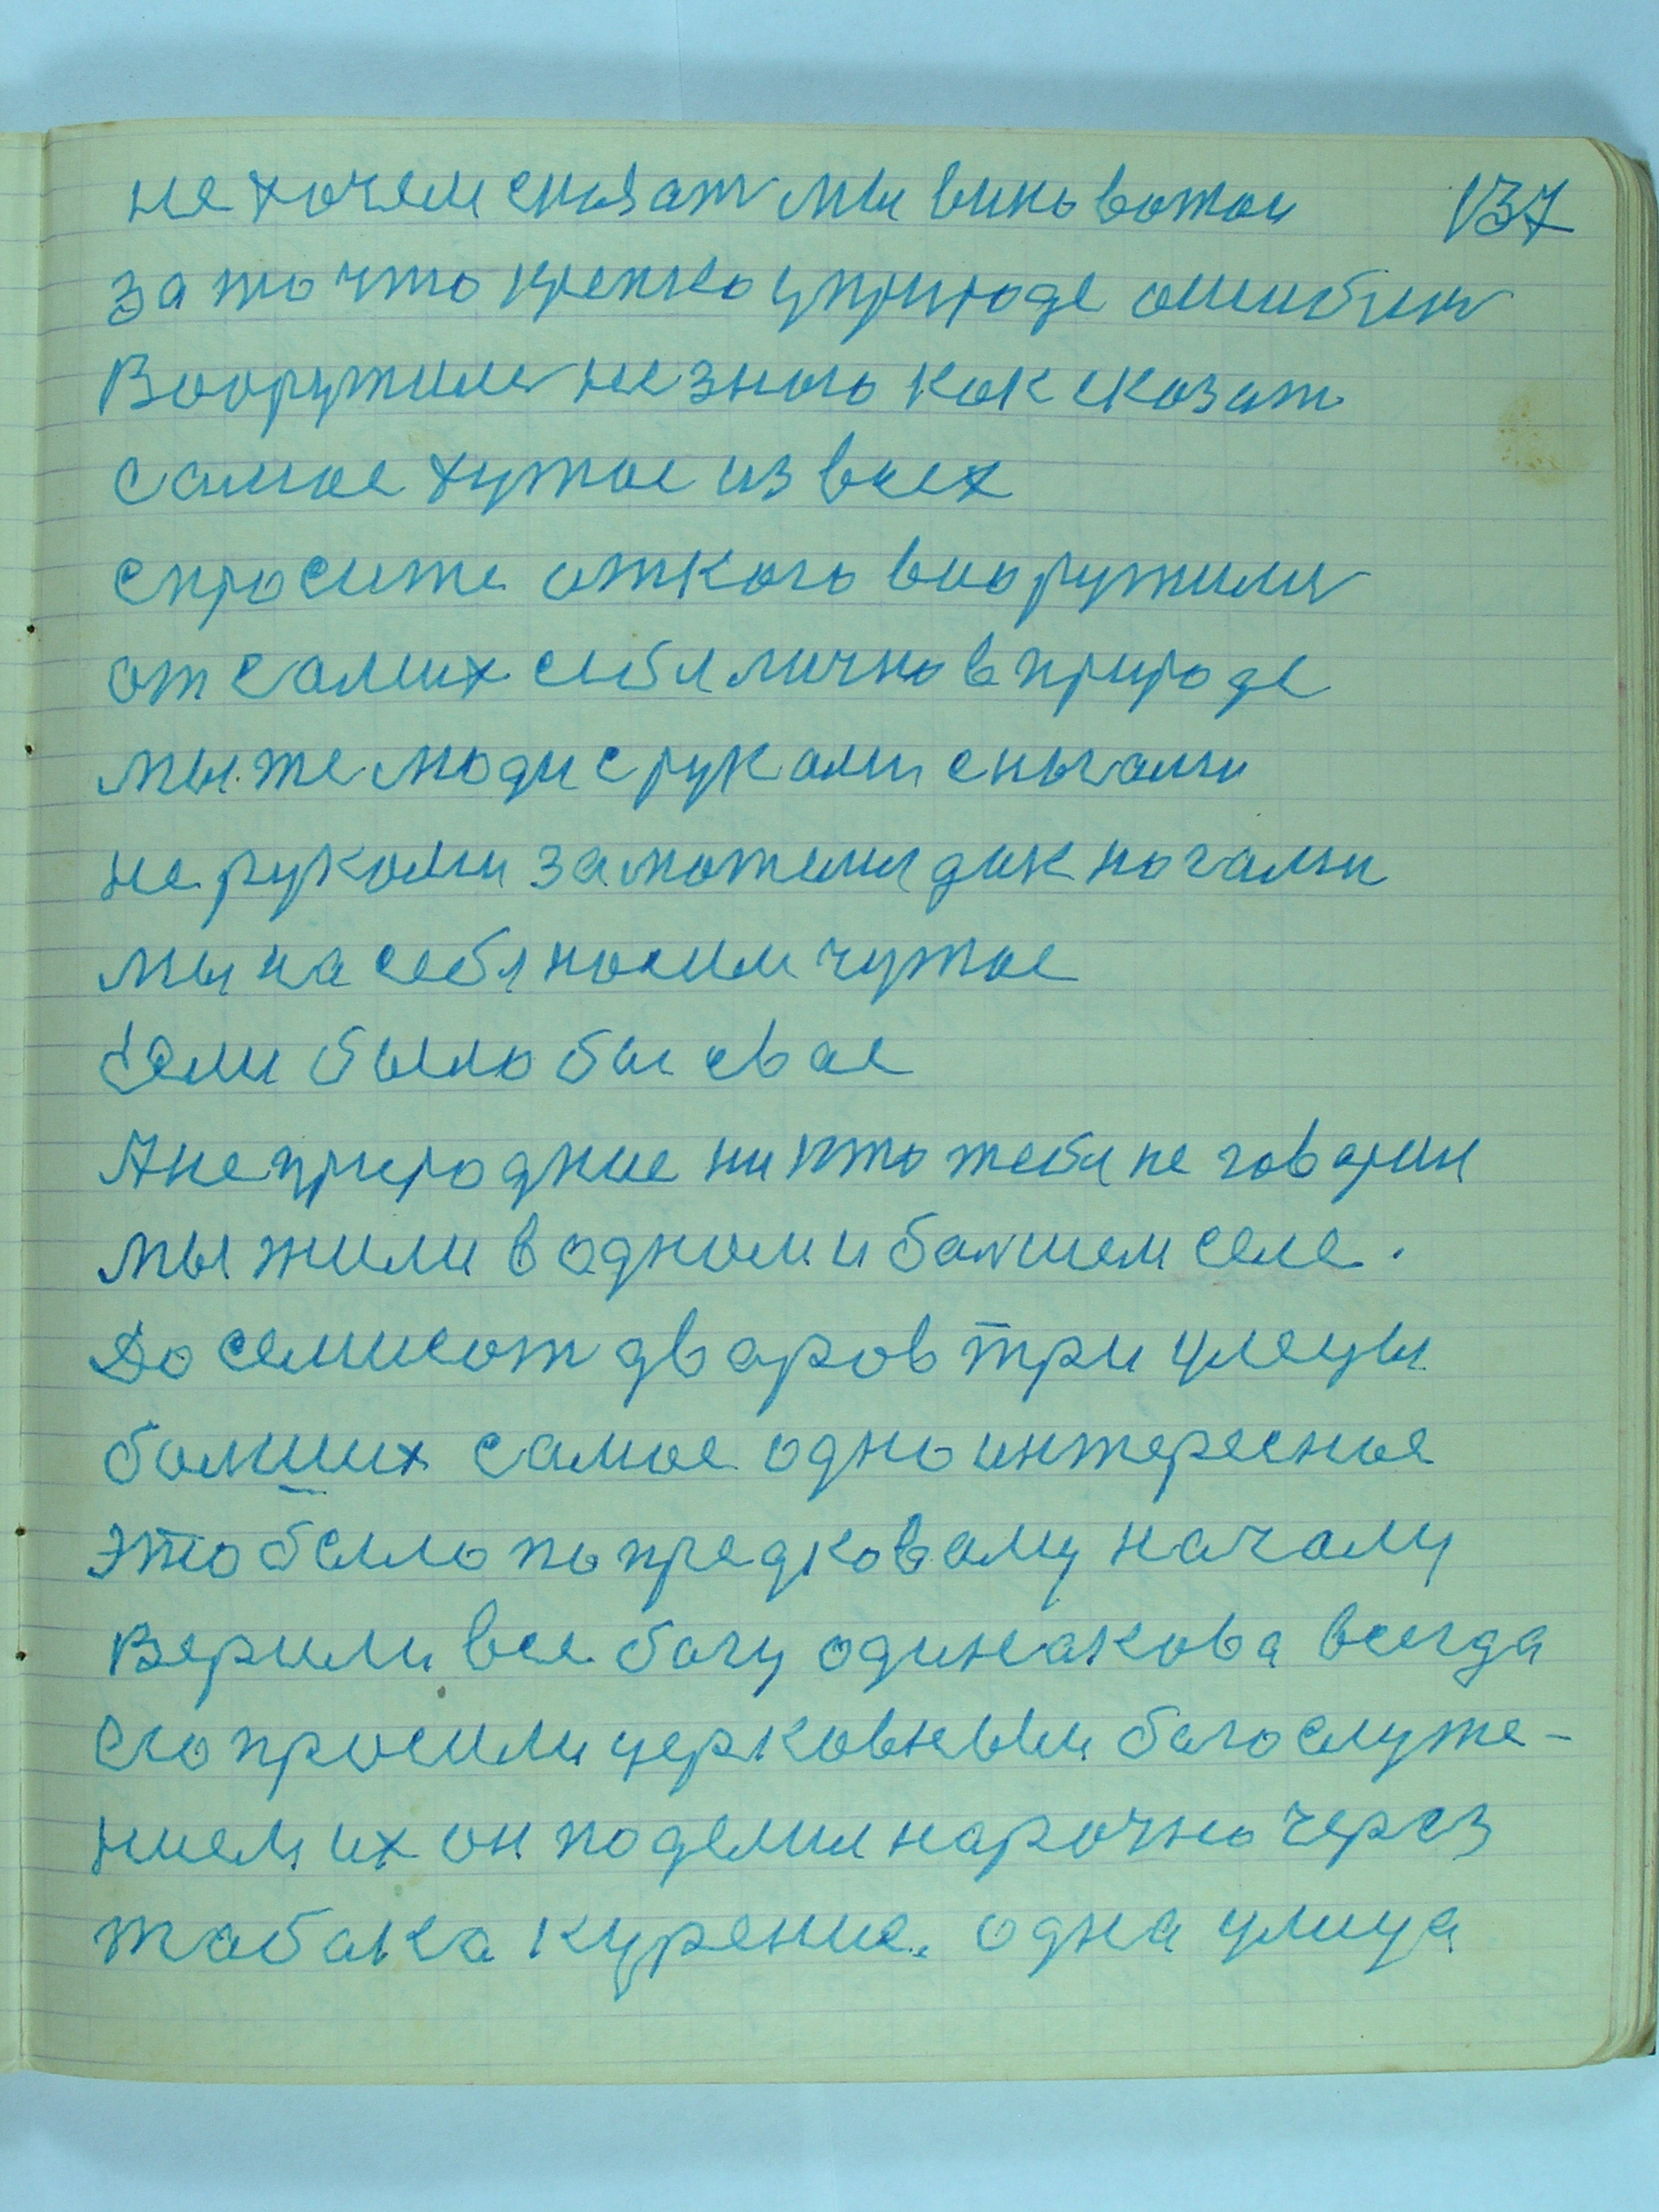 не хочем сказат мы виноватои 137
за то что крепко у природе ошиблис
Вооружилис не знаю как сказат
самое хужое из всех
спросите откого вооружилис
от самих себя лично в природе
мы же люди с руками с ногами
не руками за дик ногами
мы на себя носим чужое
Если было бы свае
А не природние ни кто тебя не говорил
мы жили в одном и балшем селе.
До семисот дваров три улецы
балших самое одно интересное
это было по предковаму началу
Верили все богу одинакова всегда
его просили церковным богослуже-
нием их он поделил нарочно через
табака курение. одна улица